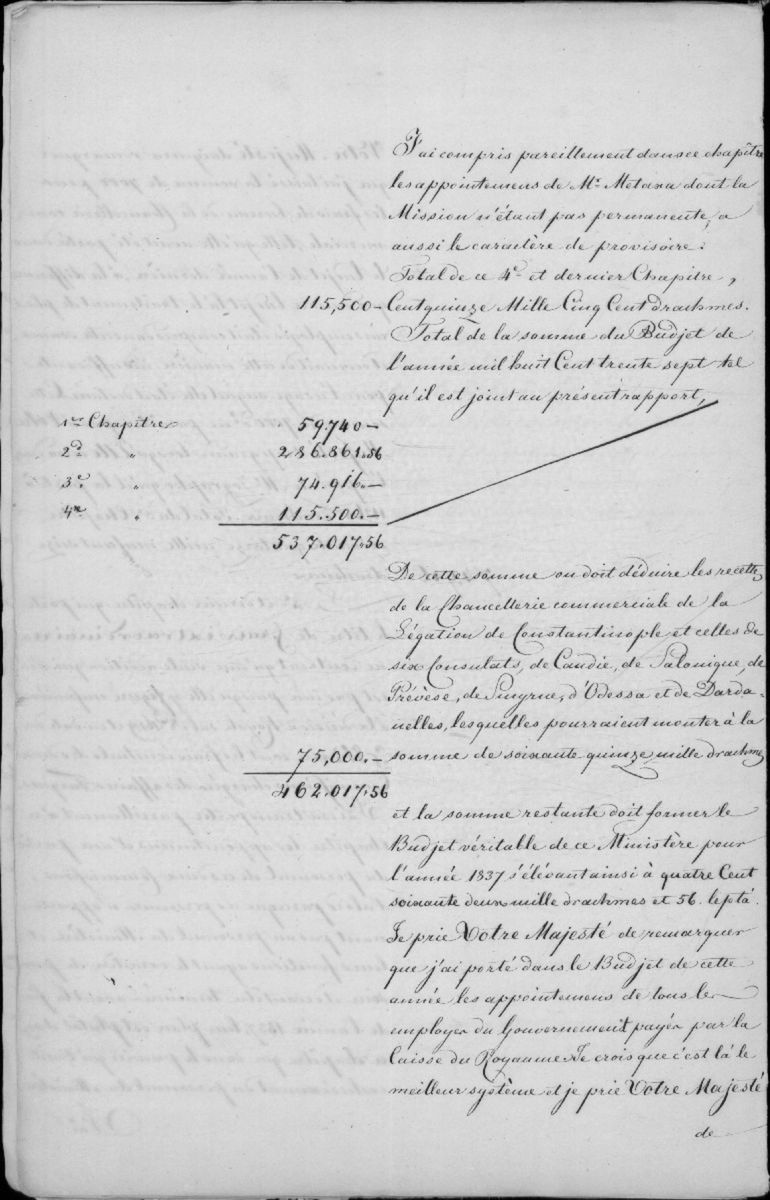 J'ai compris pareillement dans ce chapitre
les appointemens de Mr. Metaxa dont la
Mission n'étant pas permanente, a
aussi le caractère de provisoire.
Total de ce 4e et dernier Chapitre,
115,500 — Cent quinze Mille Cinq Cent drachmes.
Total de la somme du Budjet de
l'année mil huit Cent trente sept tel
qu'il est joint au présent rapport,
1er Chapitre 59.740 —
2d " 286.861.56
3e " 74.916. —
4me " 115.500. —
537.017.56
De cette somme on doit déduire les recettes
de la Chancellerie commerciale de la
Légation de Constantinople et celles de
six Consulats, de Candie, de Salonique, de
Prévèse, de Smyrne, d'Odessa et de Darda-
nelles, lesquelles pourraient monter à la
75,000. — somme de soixante quinze mille drachmes
462.017.56
et la somme restante doit former le
Budjet véritable de ce Ministère pour
l'année 1837 s'élévant ainsi à quatre Cent
soixante deux mille drachmes et 56. leptá.
Je prie Votre Majesté de remarquer
que j'ai porté dans le Budjet de cette
année les appointemens de tous les
employés du Gouvernement payés par la
Caisse du Royaume. Je crois que c'est là le
meilleur système et je prie Votre Majesté
de